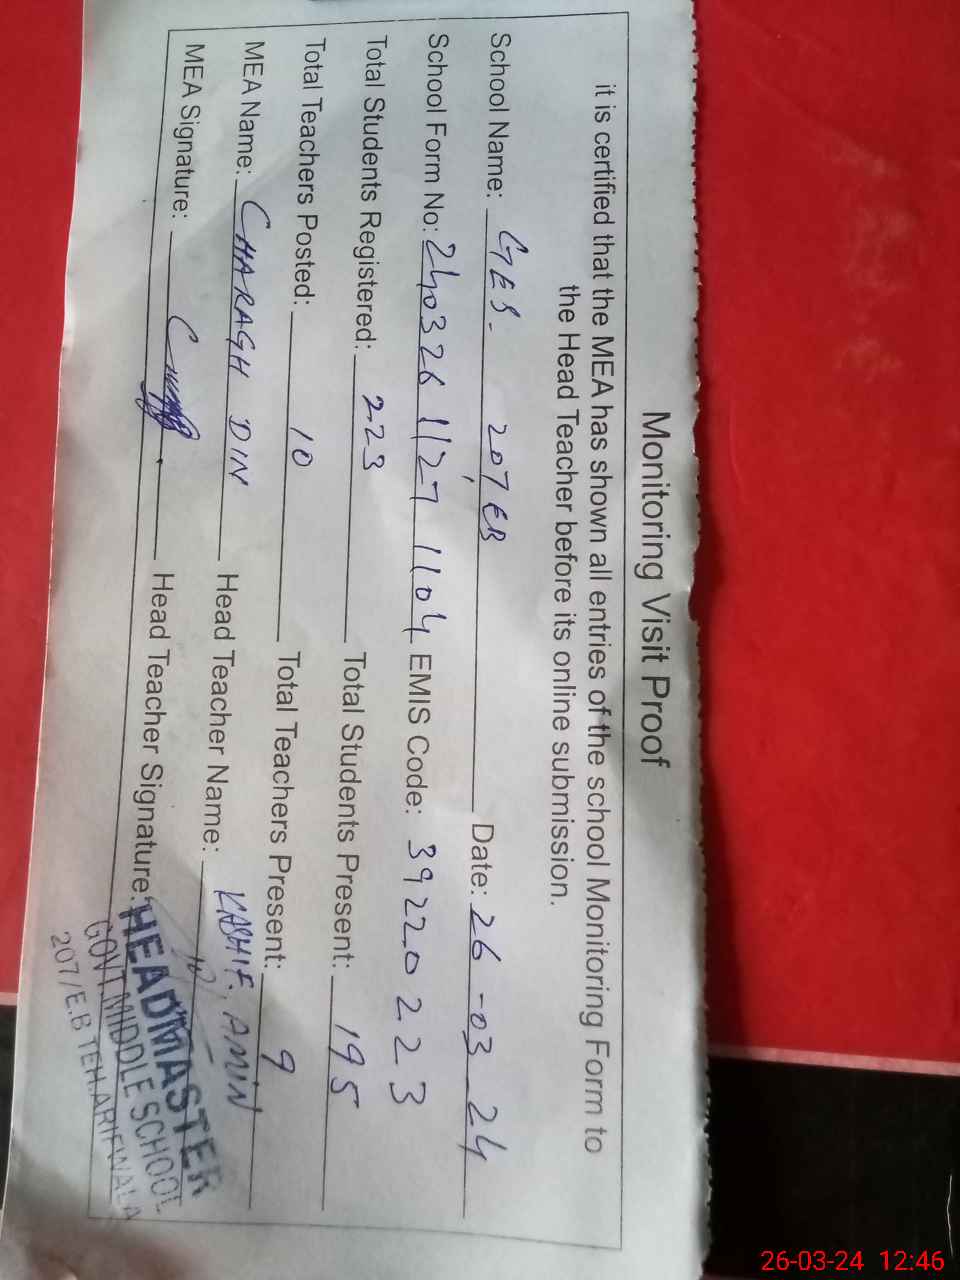 Monitoring Visit Proof
it is certified that the MEA has shown all entries of the school Monitoring Form to
the Head Teacher before its online submission.
School Name: GES. 207 EB Date: 26-03-24
School Form No: 240326 1127 1104 EMIS Code: 39220223
Total Students Registered: 223 Total Students Present: 195
Total Teachers Posted: 10 Total Teachers Present: 9
MEA Name: CHARAGH DIN Head Teacher Name: KASHIF. AMIN
MEA Signature: Head Teacher Signature:
HEADMASTER
GOVT.MIDDLE SCHOOL
207/E.B TEH.ARIFWALA
26-03-24 12:46